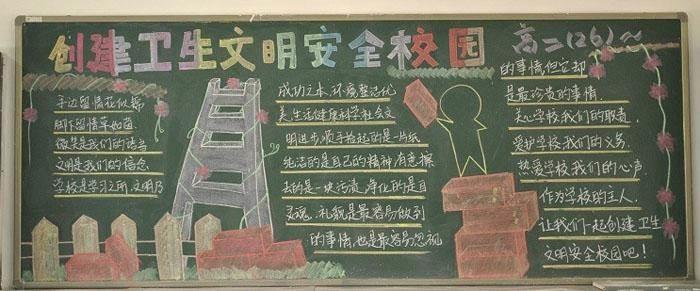 创建卫生文明安全校园
高二(26)~
手边留情花似锦
脚下留情草如茵
微笑是我们的语言
文明是我们的信念
学校是学习之所,文明乃
成功之本、环境整洁化
美,生活健康科学社会文
明进步,顺手捡起的是一片纸
纯洁的是自己的精神,有意擦
去的是一块污渍,净化的是自
灵魂、礼貌是最容易做到
的事情,也是最容易忽视
的事情,但它却
是最珍贵的事情.
关心学校我们的职责,
爱护学校我们的义务.
热爱学校我们的心声.
作为学校的主人,
让我们一起创建卫生
文明安全校园吧!